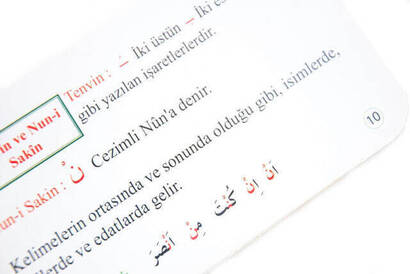 Tenvin : ـًـ İki üstün ـٍـ İki es
gibi yazılan işaretlerlerdir.
in ve Nun-i
Sakîn
un-i Sakin : نْ Cezimli Nûn'a denir.
Kelimelerin ortasında ve sonunda olduğu gibi, isimlerde,
lerde ve edatlarda gelir.
اَنْ اِنْ كُنْتَ مِنْ اَنْصَرَ
10